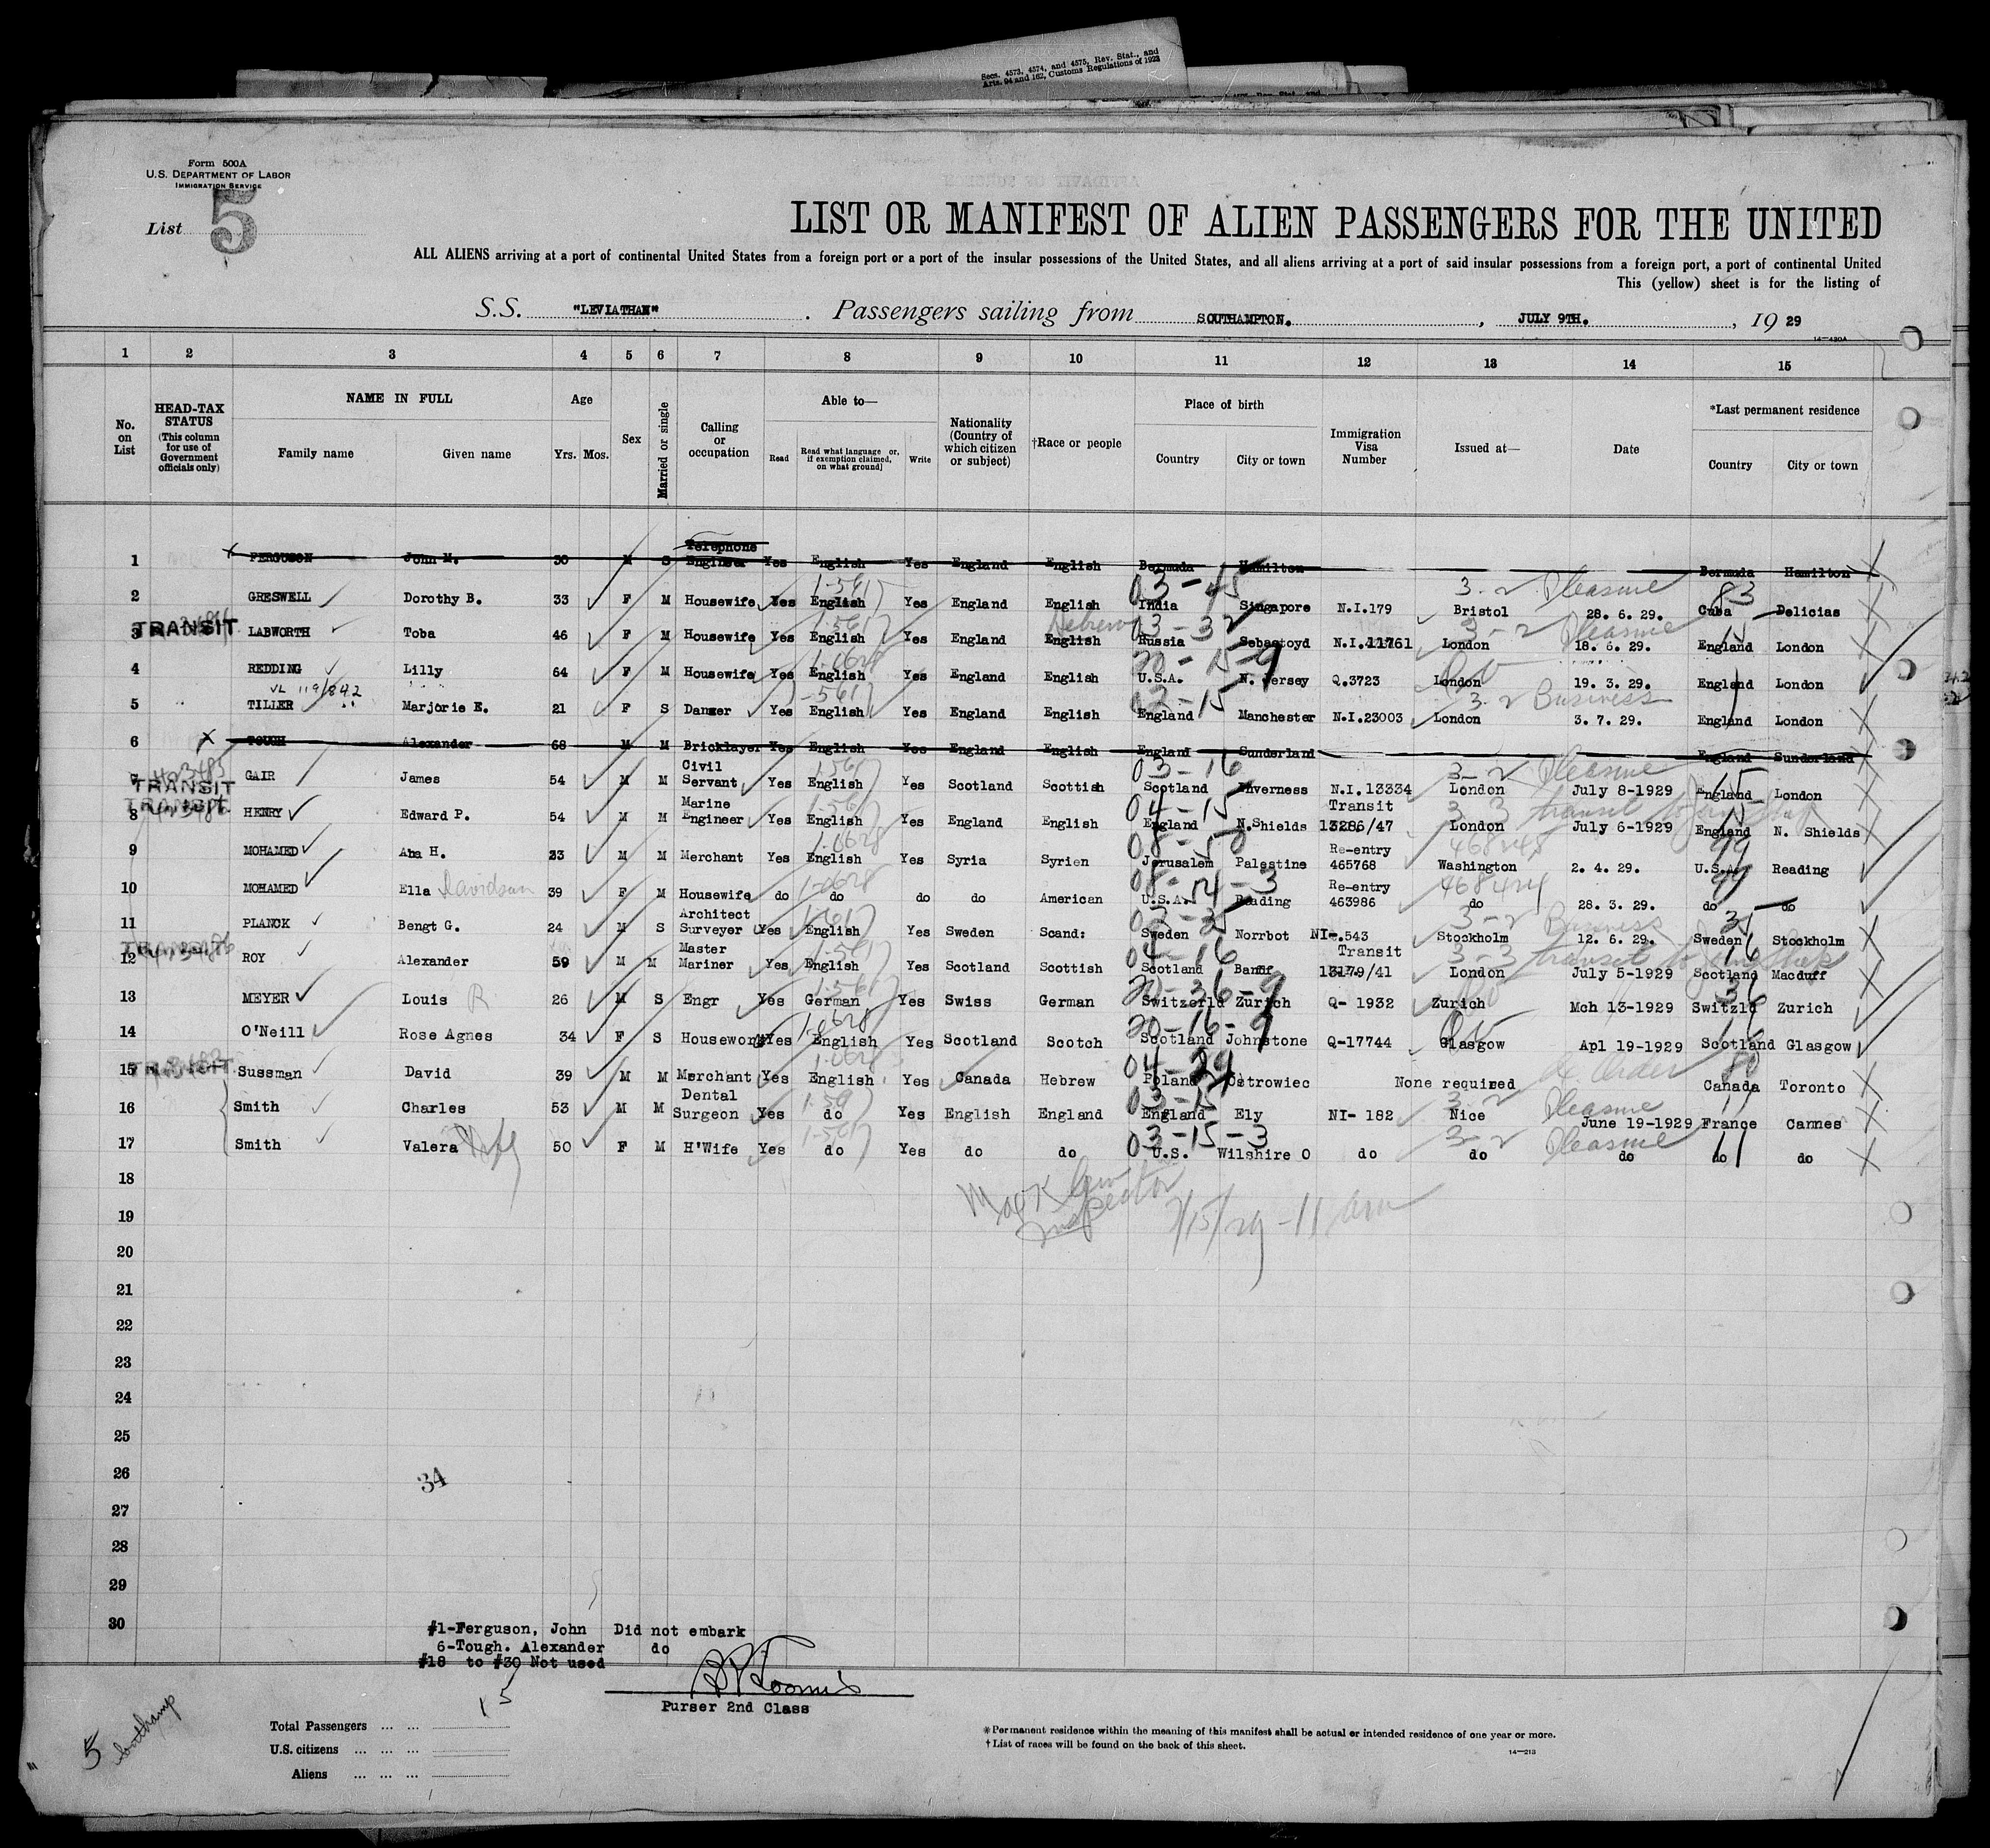 Secs. 4573, 4574, and 4575, Rev. Stat., and
Arts. 94 and 162, Customs Regulations of 1923
Form 500A
U.S. DEPARTMENT OF LABOR
IMMIGRATION SERVICE
List 5
LIST OR MANIFEST OF ALIEN PASSENGERS FOR THE UNITED
ALL ALIENS arriving at a port of continental United States from a foreign port or a port of the insular possessions of the United States, and all aliens arriving at a port of said insular possessions from a foreign port, a port of continental United
This (yellow) sheet is for the listing of
S.S. "LEVIATHAN" . Passengers sailing from SOUTHAMPTON. , JULY 9TH. , 19 29
14—430A
1 2 3 4 5 6 7 8 9 10 11 12 13 14 15
No. on List
HEAD-TAX STATUS (This column for use of Government officials only)
NAME IN FULL
Family name Given name
Age
Yrs. Mos.
Sex
Married or single
Calling or occupation
Able to—
Read Read what language or, if exemption claimed, on what ground] Write
Nationality (Country of which citizen or subject)
†Race or people
Place of birth
Country City or town
Immigration Visa Number
Issued at—
Date
*Last permanent residence
Country City or town
1 x FERGUSON John M. 30 M S Telephone Engineer Yes English Yes England English Bermuda Hamilton Bermuda Hamilton X
2 GRESWELL Dorothy B. 33 F M Housewife Yes English 1-561 Yes England English 03-45 India Singapore N.I.179 Bristol 3-2 Pleasure 28. 6. 29. 83 Cuba Delicias X
3 TRANSIT LABWORTH Toba 46 F M Housewife Yes English 1-561 Yes England English Hebrew 03-32 Russia Sebastoyd N.I.11761 London 3-2 Pleasure 18. 6. 29. England London
4 REDDING Lilly 64 F M Housewife Yes English 1-0628 Yes England English 20-15-9 U.S.A. N. Jersey Q.3723 London 19. 3. 29. England London
VL 119/842
5 TILLER Marjorie E. 21 F S Dancer Yes English 1-561 Yes England English 03-15 England Manchester N.I.23003 London 3-2 Business 3. 7. 29. England London X
6 X TOUGH Alexander 68 M M Bricklayer Yes English Yes England English England Sunderland England Sunderland
7 TRANSIT GAIR James 54 M M Civil Servant Yes English 1-561 Yes Scotland Scottish 03-16 Scotland Inverness N.I.13334 London 3-2 Pleasure July 8-1929 15 England London X
8 TRANSIT HENRY Edward P. 54 M M Marine Engineer Yes English 1-561 Yes England English 04-15 England N.Shields Transit 13286/47 London 3-3 transit to join ship July 6-1929 15 England N. Shields X
9 MOHAMED Aba H. 23 M M Merchant Yes English 1-0628 Yes Syria Syrien 08-50 Jerusalem Palestine Re-entry 465768 Washington 2. 4. 29. 99 U.S.A. Reading
10 MOHAMED Ella Davidson 39 F M Housewife do do 1-0628 do do American U.S.A. Reading Re-entry 463986 do 468424 28. 3. 29. 99 do do
11 PLANCK Bengt G. 24 M S Architect Surveyor Yes English 1-561 Yes Sweden Scand: 03-35 Sweden Norrbot NI-.543 Stockholm 3-2 Business 12. 6. 29. 35 Sweden Stockholm X
12 TRANSIT ROY Alexander 59 M M Master Mariner Yes English 1-561 Yes Scotland Scottish 04-16 Scotland Banff Transit 13179/41 London 3-3 transit to join ship July 5-1929 16 Scotland Macduff X
13 MEYER Louis R 26 M S Engr Yes German 1-561 Yes Swiss German 20-36-9 Switzerld Zurich Q- 1932 Zurich Mch 13-1929 36 Switzld Zurich
14 O'Neill Rose Agnes 34 F S Housework Yes English 1-0628 Yes Scotland Scotch 20-16-9 Scotland Johnstone Q-17744 Glasgow Apl 19-1929 16 Scotland Glasgow
15 TRANSIT Sussman David 39 M M Merchant Yes English 1-0628 Yes Canada Hebrew 04-29 Poland Ostrowiec None required 80 Canada Toronto X
16 Smith Charles 53 M M Dental Surgeon Yes do Yes English England 03-15 England Ely NI- 182 Nice 3-2 Pleasure June 19-1929 France Cannes X
17 Smith Valera Wife 50 F M H'Wife Yes do 1-561 Yes do do 03-15-3 U.S. Wilshire O do do 3-2 Pleasure do 11 do do X
18
Inspector
7/15/29 - 11 am
19
20
21
22
23
24
25
26
34
27
28
29
30
#1-Ferguson, John Did not embark
6-Tough. Alexander do
#18 to #30 Not used
Purser 2nd Class
5 Southamp
Total Passengers ... ... 15
U.S. citizens ... ... ...
Aliens ... ... ...
*Permanent residence within the meaning of this manifest shall be actual or intended residence of one year or more.
†List of races will be found on the back of this sheet.
14—213